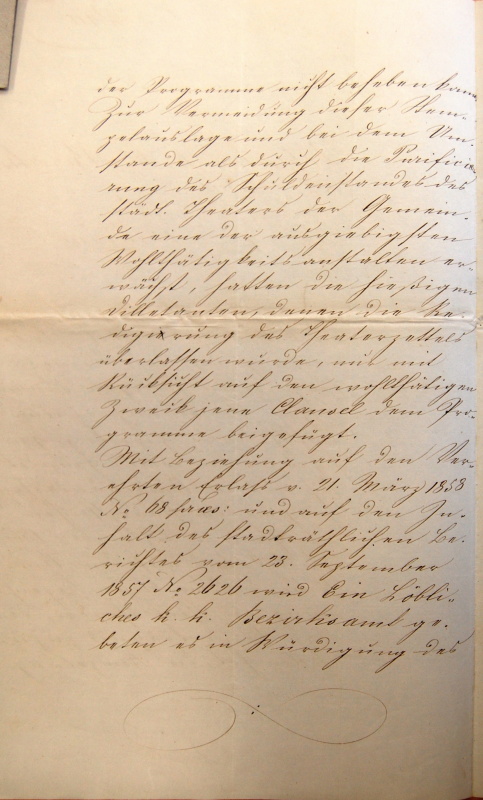 der Programme nicht beheben kann
Zur Vermeidung dieser Stem-
pelauslage und bei dem Um-
stande als durch die Purificie-
rung des Schuldenstandes des
städt. Theaters der Gemein-
de eine der ausgiebigsten
Wohlthätigkeitsanstalten er-
wächst, hatten die hießigen
Dilletanten, denen die Re-
digierung des Theaterzettels
überlassen wurde, nur mit
Rücksicht auf den wohlthätigen
Zweck jene Clausel dem Pro-
gramme beigefügt.
Mit Beziehung auf den Ver-
ehrten Erlaß v. 21. März 1858
No 68 und auf den In-
halt des stadträthlichen Be-
richtes vom 23. September
1857 No 2626 wird Ein Löbli-
ches k. k. Bezirksamt ge-
beten es in Würdigung des